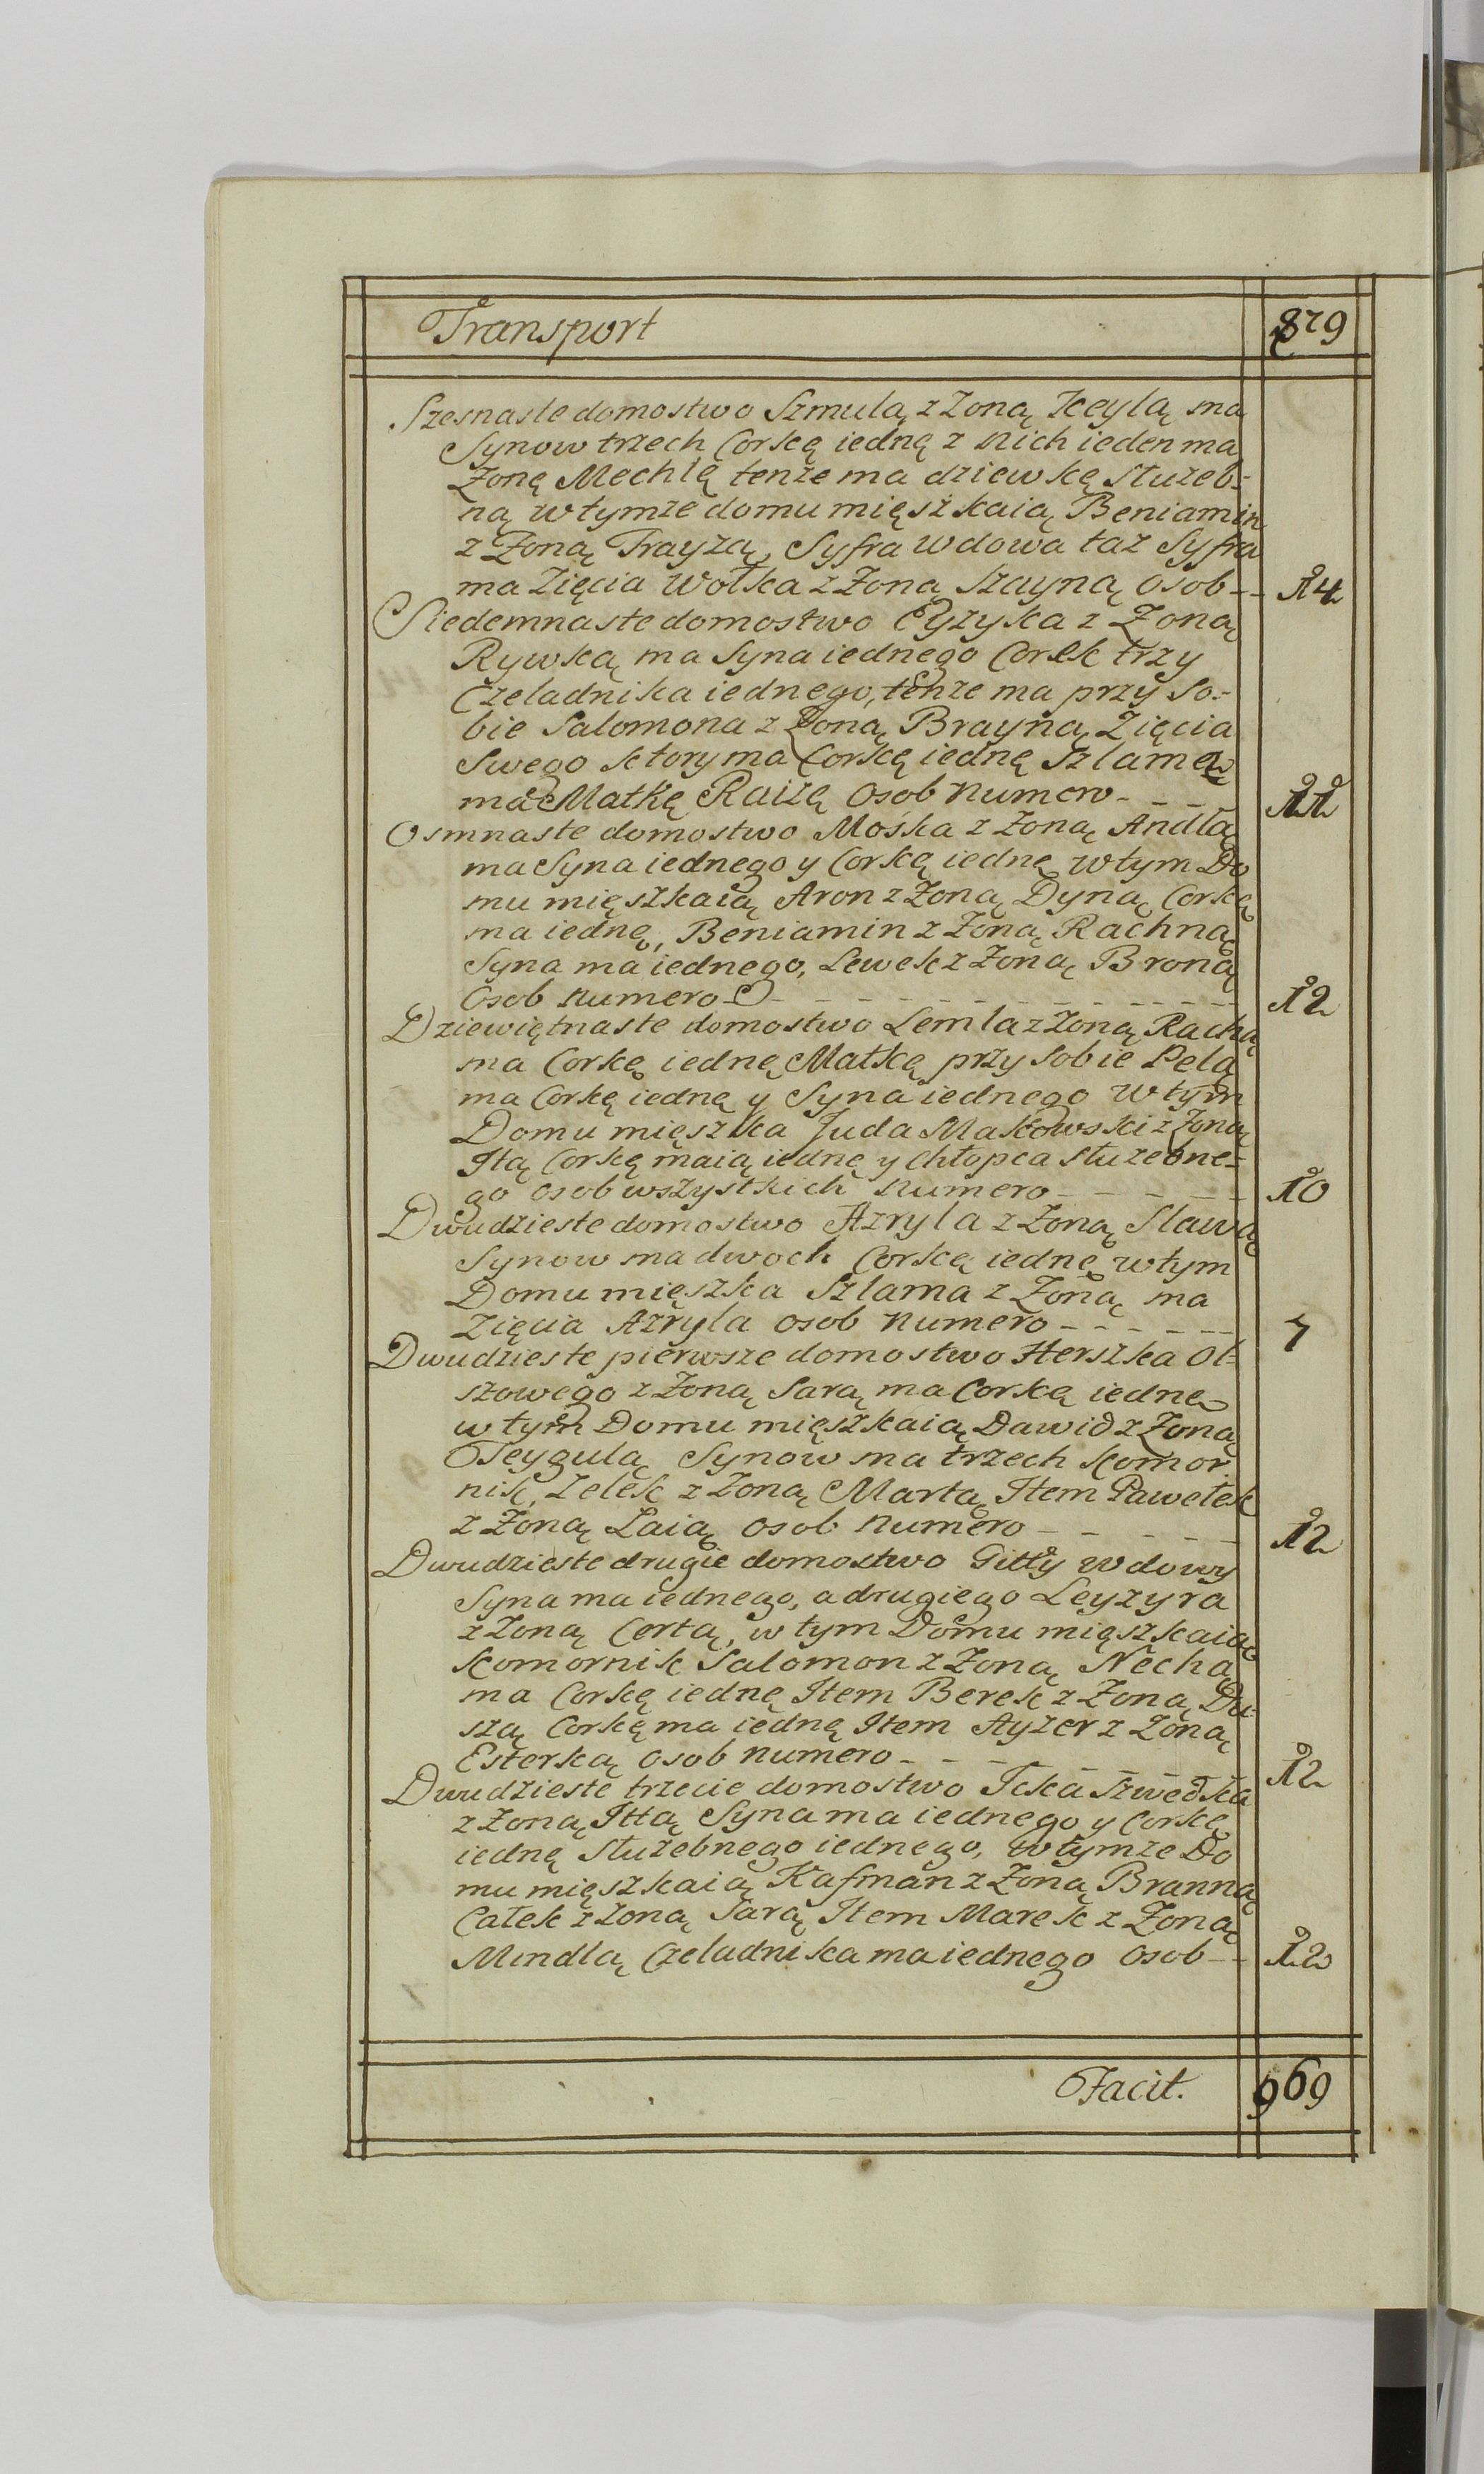 Transport 879
Szesnaste domostwo Szmula z Żoną Keylą ma
Synow trzech Corkę iednę z nich ieden ma
Żonę Mechlę tenże ma dziewkę służeb=
ną w tymże domu mięszkaią Beniamin
z Żoną Frayzą, Syfra Wdowa taż Syfra
ma Zięcia Wolka z Żoną Szayną osob -- 14
Siedemnaste domostwo Eyzyka z Żoną
Rywką ma Syna iednego Corek trzy
Czeladnika iednego, tenże ma przy so=
bie Salomona z Żoną Brayną Zięcia
Swego ktory ma Corkę iednę Szlamę
ma Matkę Raizę Osob numero ---- 11
Osmnaste domostwo Mośka z Żoną Andlą
ma Syna iednego y Corkę iednę w tym Do
mu mięszkaią Aron z Żoną Dyną Corkę
ma iednę, Beniamin z Żoną Rachną
Syna ma iednego, Lewek z Żoną Broną
Osob numero ---- 12
Dziewiętnaste domostwo Lemla z Żoną Rachą
ma Corkę iednę Matkę przy sobie Pelą
ma Corkę iednę y Syna iednego w tym
Domu mięszka Juda Makowski z Żoną
Itą Corkę maią iednę y chłopca służebne=
go osob wszystkich numero ---- 10
Dwudzieste domostwo Azryla z Żoną Sławą
Synow ma dwoch Corkę iednę w tym
Domu mięszka Szlama z Żoną ma
Zięcia Azryla osob numero ---- 7
Dwudzieste pierwsze domostwo Herszka Ol=
szowego z Żoną Sarą ma Corkę iednę
w tym Domu mięszkaią Dawid z Żoną
Feygulą Synow ma trzech komor
nik, Zelek z Żoną Martą Item Pawełek
z Żoną Laią osob numero ---- 12
Dwudzieste drugie domostwo Gitly Wdowy
Syna ma iednego, a drugiego Leyzyra
z Żoną Cortą, w tym Domu mięszkaią
komornik Salomon z Żoną Nechą
ma Corkę iednę Item Berek z Żoną Du=
szą Corkę ma iednę Item Ayzer z Żoną
Esterką osob numero ---- 12
Dwudzieste trzecie domostwo Icka Szwedka
z Żoną Ittą Syna ma iednego y Corkę
iednę służebnego iednego, w tymże Do
mu mięszkaią Kafman z Żoną Branną
Całek z Żoną Sarą Item Marek z Żoną
Mindlą Czeladnika ma iednego osob -- 12
Facit. 969